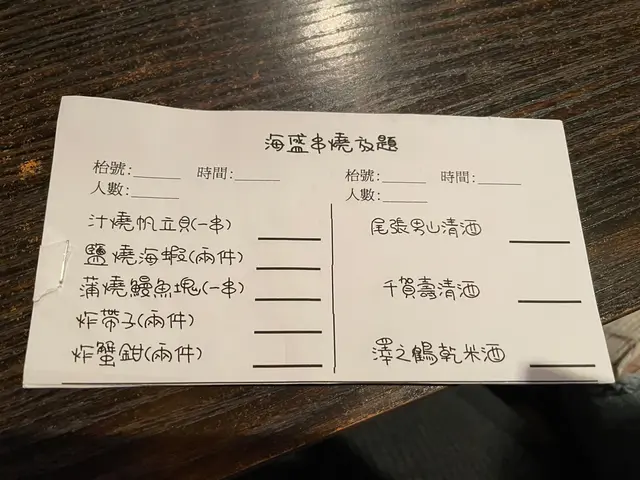 海盛串燒放題
枱號:_____ 時間:_____
人數:_____
汁燒帆立貝(一串) _____
鹽燒海蝦(兩件) _____
蒲燒鰻魚塊(一串) _____
炸帶子(兩件) _____
炸蟹鉗(兩件) _____
枱號:_____ 時間:_____
人數:_____
尾張男山清酒 _____
千賀壽清酒 _____
澤之鶴乾米酒 _____